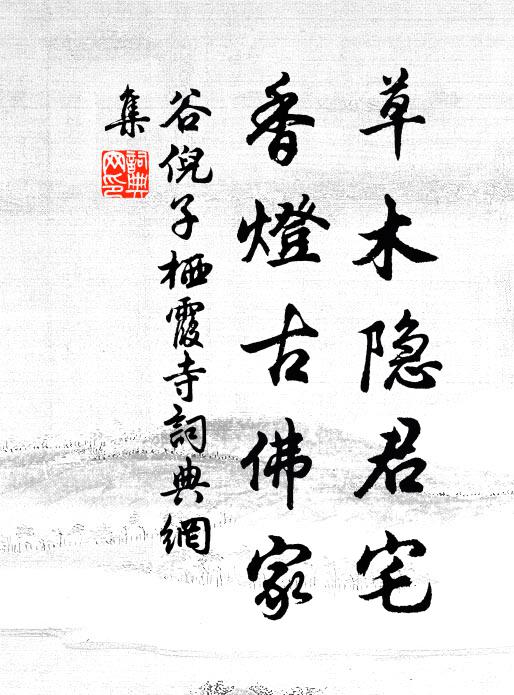 草木隐君宅
香燈古佛家
谷倪子栖霞寺詞典網
集
詞典網印